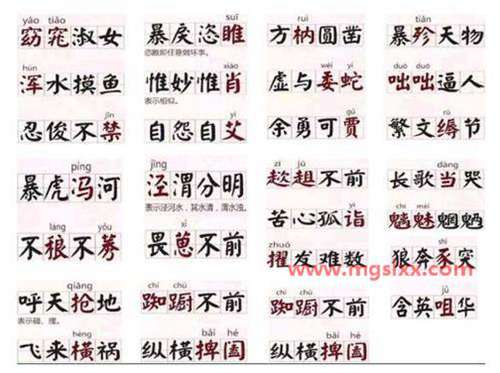 yáo tiǎo suī ruì tiǎn
窈窕淑女 暴戾恣睢 方枘圆凿 暴殄天物
恣睢即任意做坏事。
hún xiào wēi yí duō duō
浑水摸鱼 惟妙惟肖 虚与委蛇 咄咄逼人
表示相似。
jīn yì gǔ rù
忍俊不禁 自怨自艾 余勇可贾 繁文缛节
píng jīng zī jū dàng
暴虎冯河 泾渭分明 趑趄不前 长歌当哭
表示泾河水,其水清,渭水浊。
láng yǒu xǐ yì
不稂不莠 畏葸不前 苦心孤诣 魑魅魍魉
zhuó
擢发难数 狼奔豕突
www.mgsixx.com
qiāng chí chú chí chú jǔ
呼天抢地 踟蹰不前 踟蹰不前 含英咀华
表示碰、撞。
hèng bǎi hé bǎi hé
飞来横祸 纵横捭阖 纵横捭阖